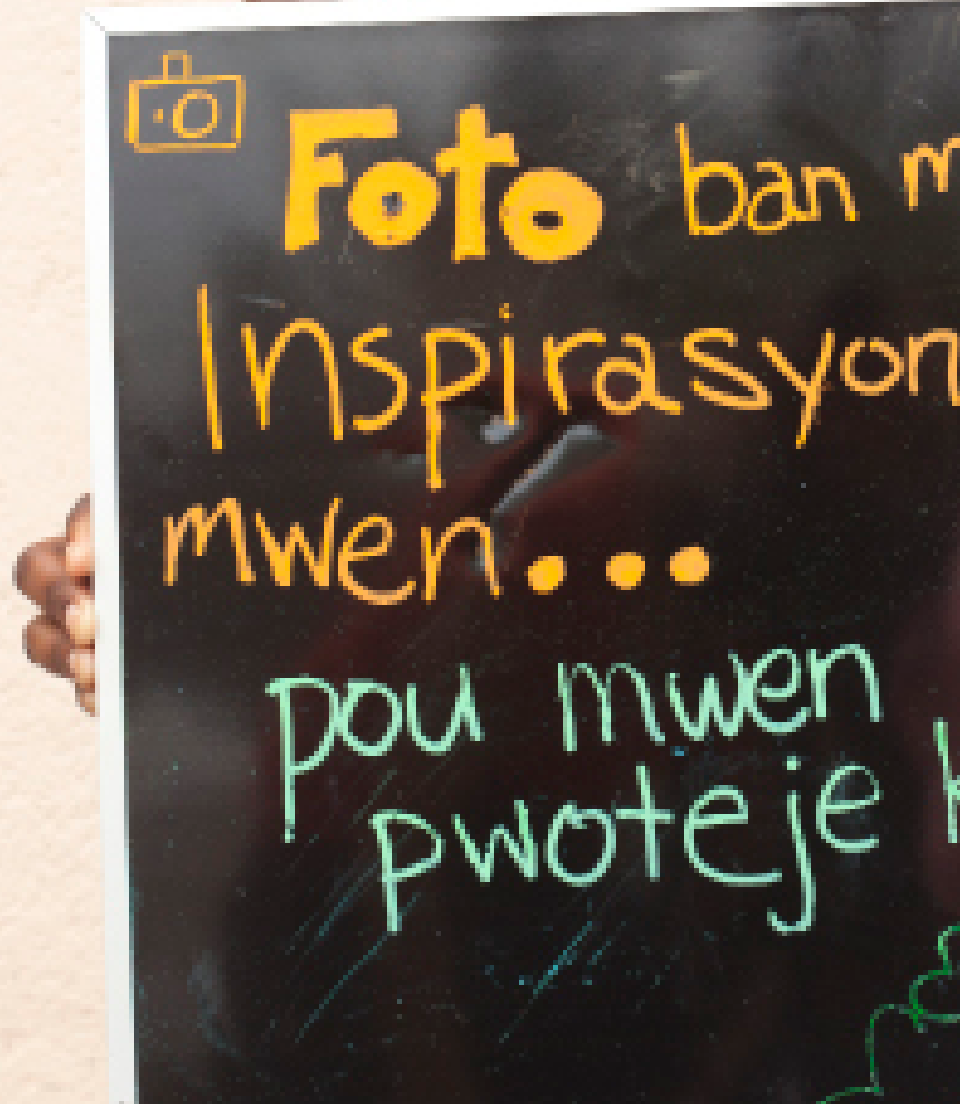 Foto ban m
Inspirasyon
mwen...
pou mwen
pwoteje